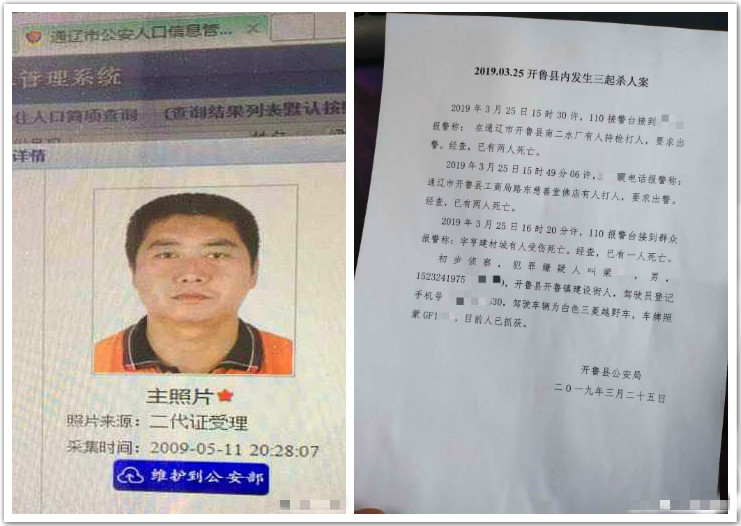 通辽市公安人口信息管...
管理系统
住人口简项查询 (查询结果列表默认按
详情
主照片
照片来源：二代证受理
采集时间：2009-05-11 20:28:07
维护到公安部
2019.03.25 开鲁县内发生三起杀人案
2019 年 3 月 25 日 15 时 30 许，110 接警台接到
报警称：在通辽市开鲁县南二水厂有人持枪打人，要求出
警。经查，已有两人死亡。
2019 年 3 月 25 日 15 时 49 分 06 许， 暖电话报警称：
通辽市开鲁县工商局路东慈善堂佛店有人打人，要求出警。
经查，已有两人死亡。
2019 年 3 月 25 日 16 时 20 分许，110 报警台接到群众
报警称：宇亨建材城有人受伤死亡。经查，已有一人死亡。
初步侦察，犯罪嫌疑人叫梁 ，男，
1523241975 ，开鲁县开鲁镇建设街人，驾驶员登记
手机号 330，驾驶车辆为白色三菱越野车，车牌照
蒙 GF ，目前人已抓获。
开鲁县公安局
二〇一九年三月二十五日